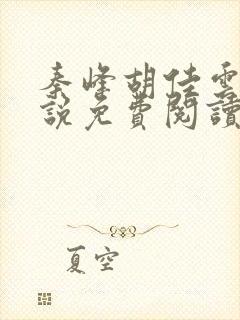 秦峰胡佳雲
說免費閱讀
夏空